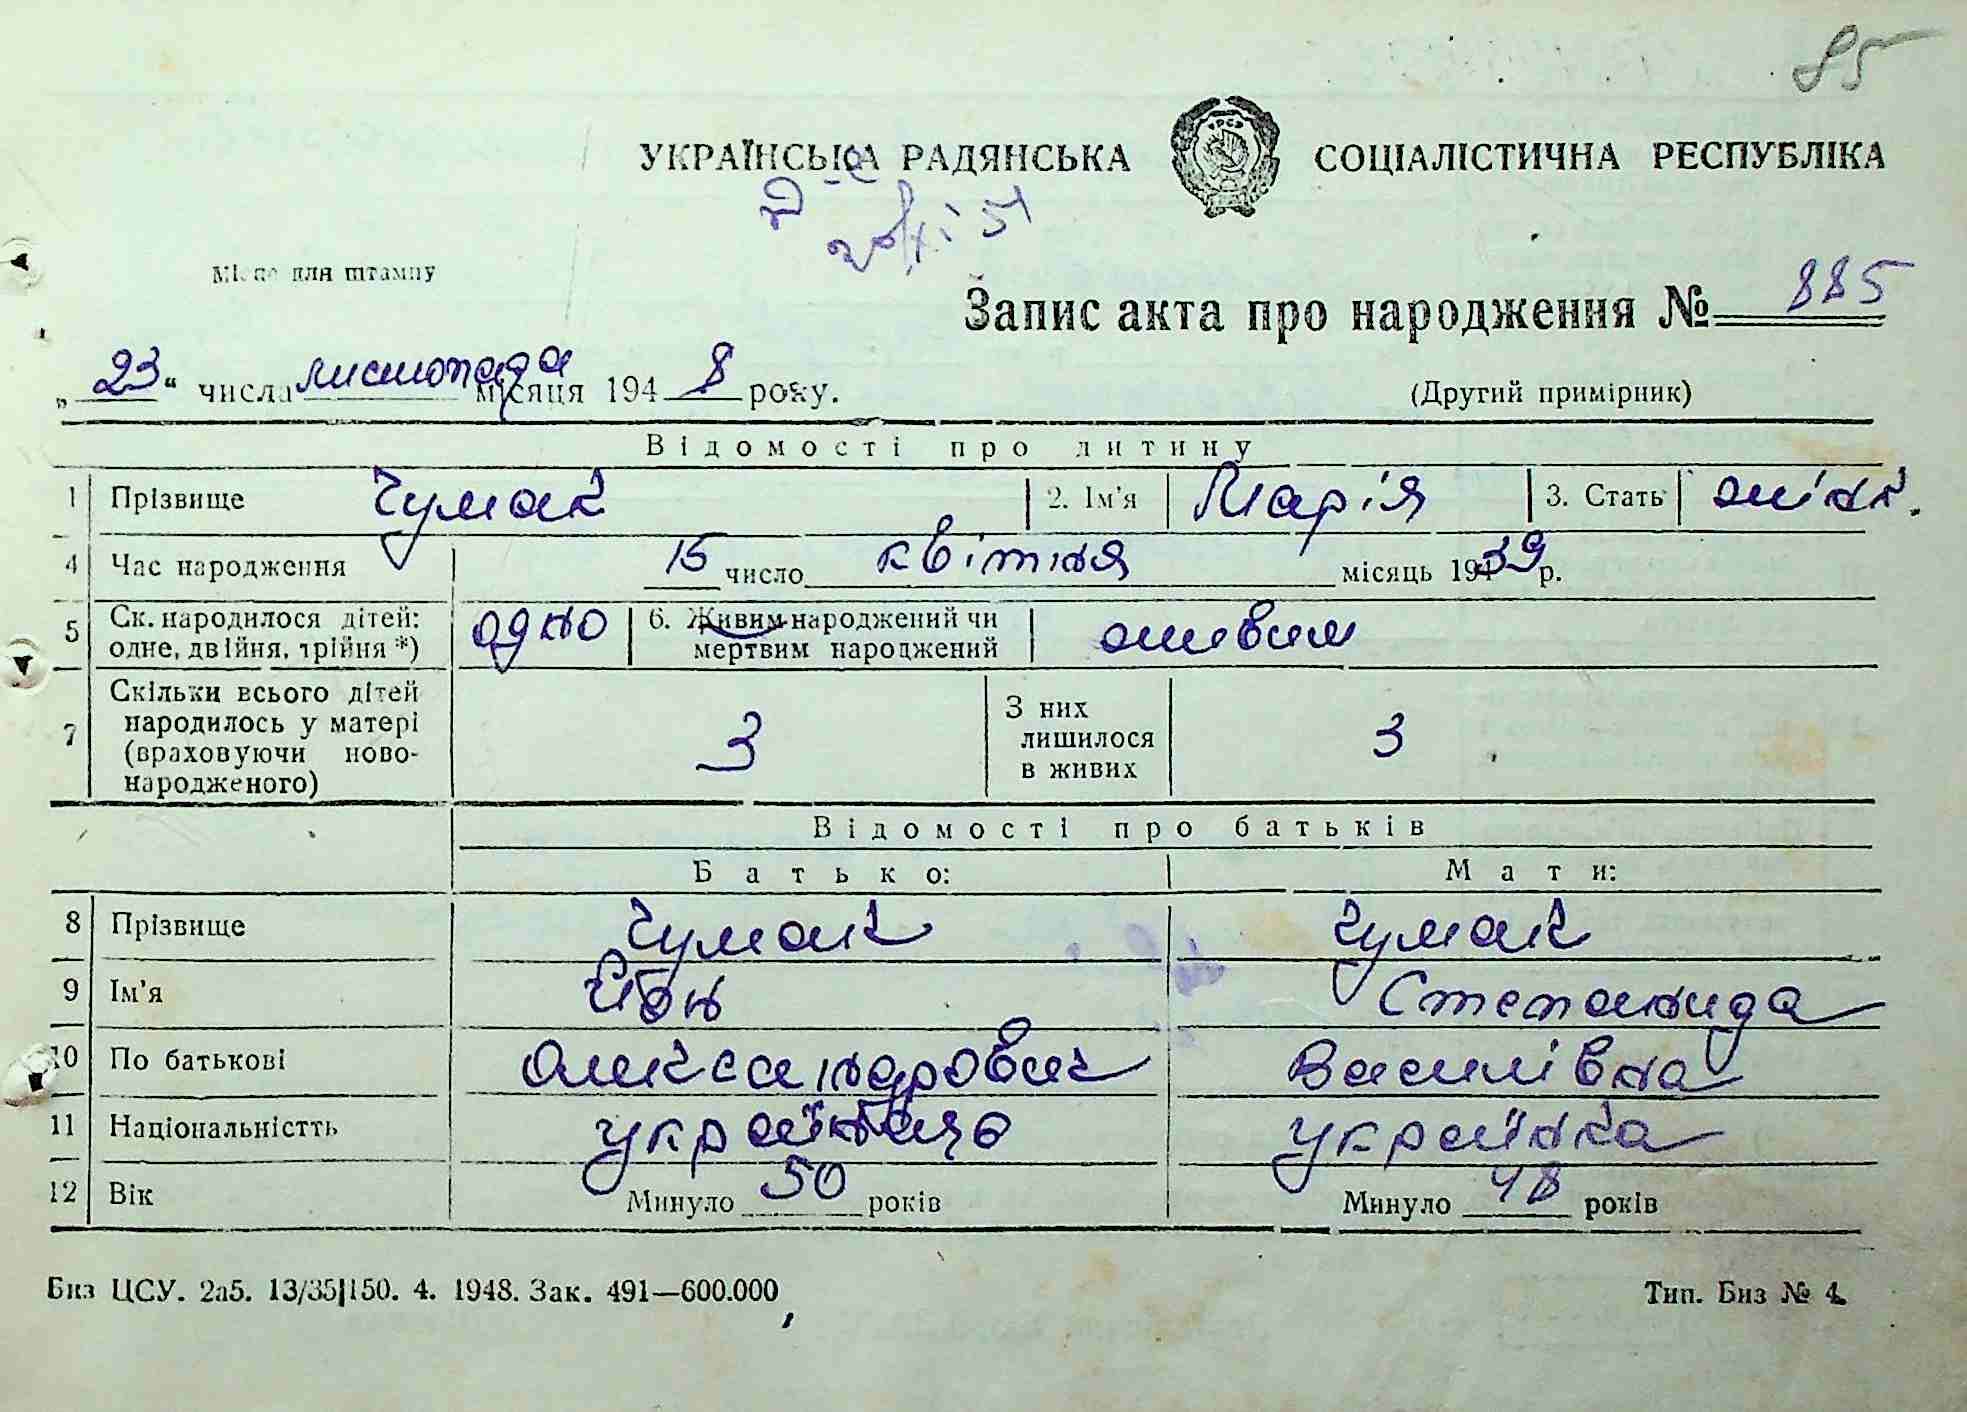 85
УКРАЇНСЬКА РАДЯНСЬКА СОЦІАЛІСТИЧНА РЕСПУБЛІКА
Місце для штампу
Запис акта про народження № 885
„23“ числа листопада місяця 1948 року.
(Другий примірник)
Відомості про дитину
1 Прізвище Чумак 2. Ім'я Марія 3. Стать жіноч.
4 Час народження 15 число квітня місяць 1939 р.
5 Ск. народилося дітей: одне, двійня, трійня *) одно 6. Живим народжений чи мертвим народжений живим
7 Скільки всього дітей народилось у матері (враховуючи ново-народженого) 3 З них лишилося в живих 3
Відомості про батьків
Батько: Мати:
8 Прізвище Чумак Чумак
9 Ім'я Степанида
10 По батькові Олександрович Василівна
11 Національністть українець українка
12 Вік Минуло 50 років Минуло 48 років
Биз ЦСУ. 2а5. 13/35|150. 4. 1948. Зак. 491—600.000
Тип. Биз № 4.